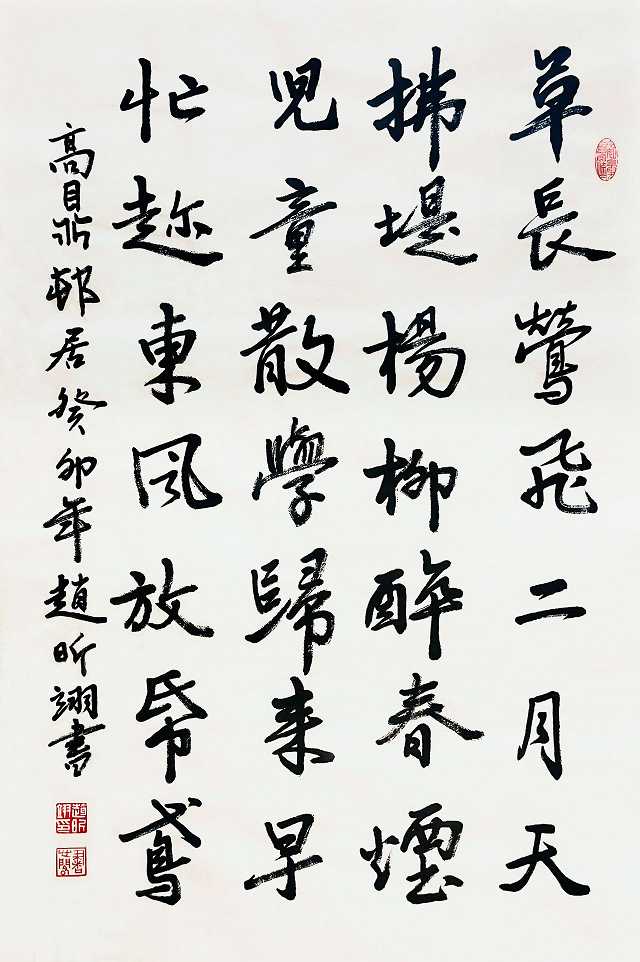 草長鶯飛二月天
拂堤楊柳醉春煙
兒童散學歸来早
忙趂東風放帋鳶
高鼎邨居癸卯年趙昕翊書
趙昕翊印